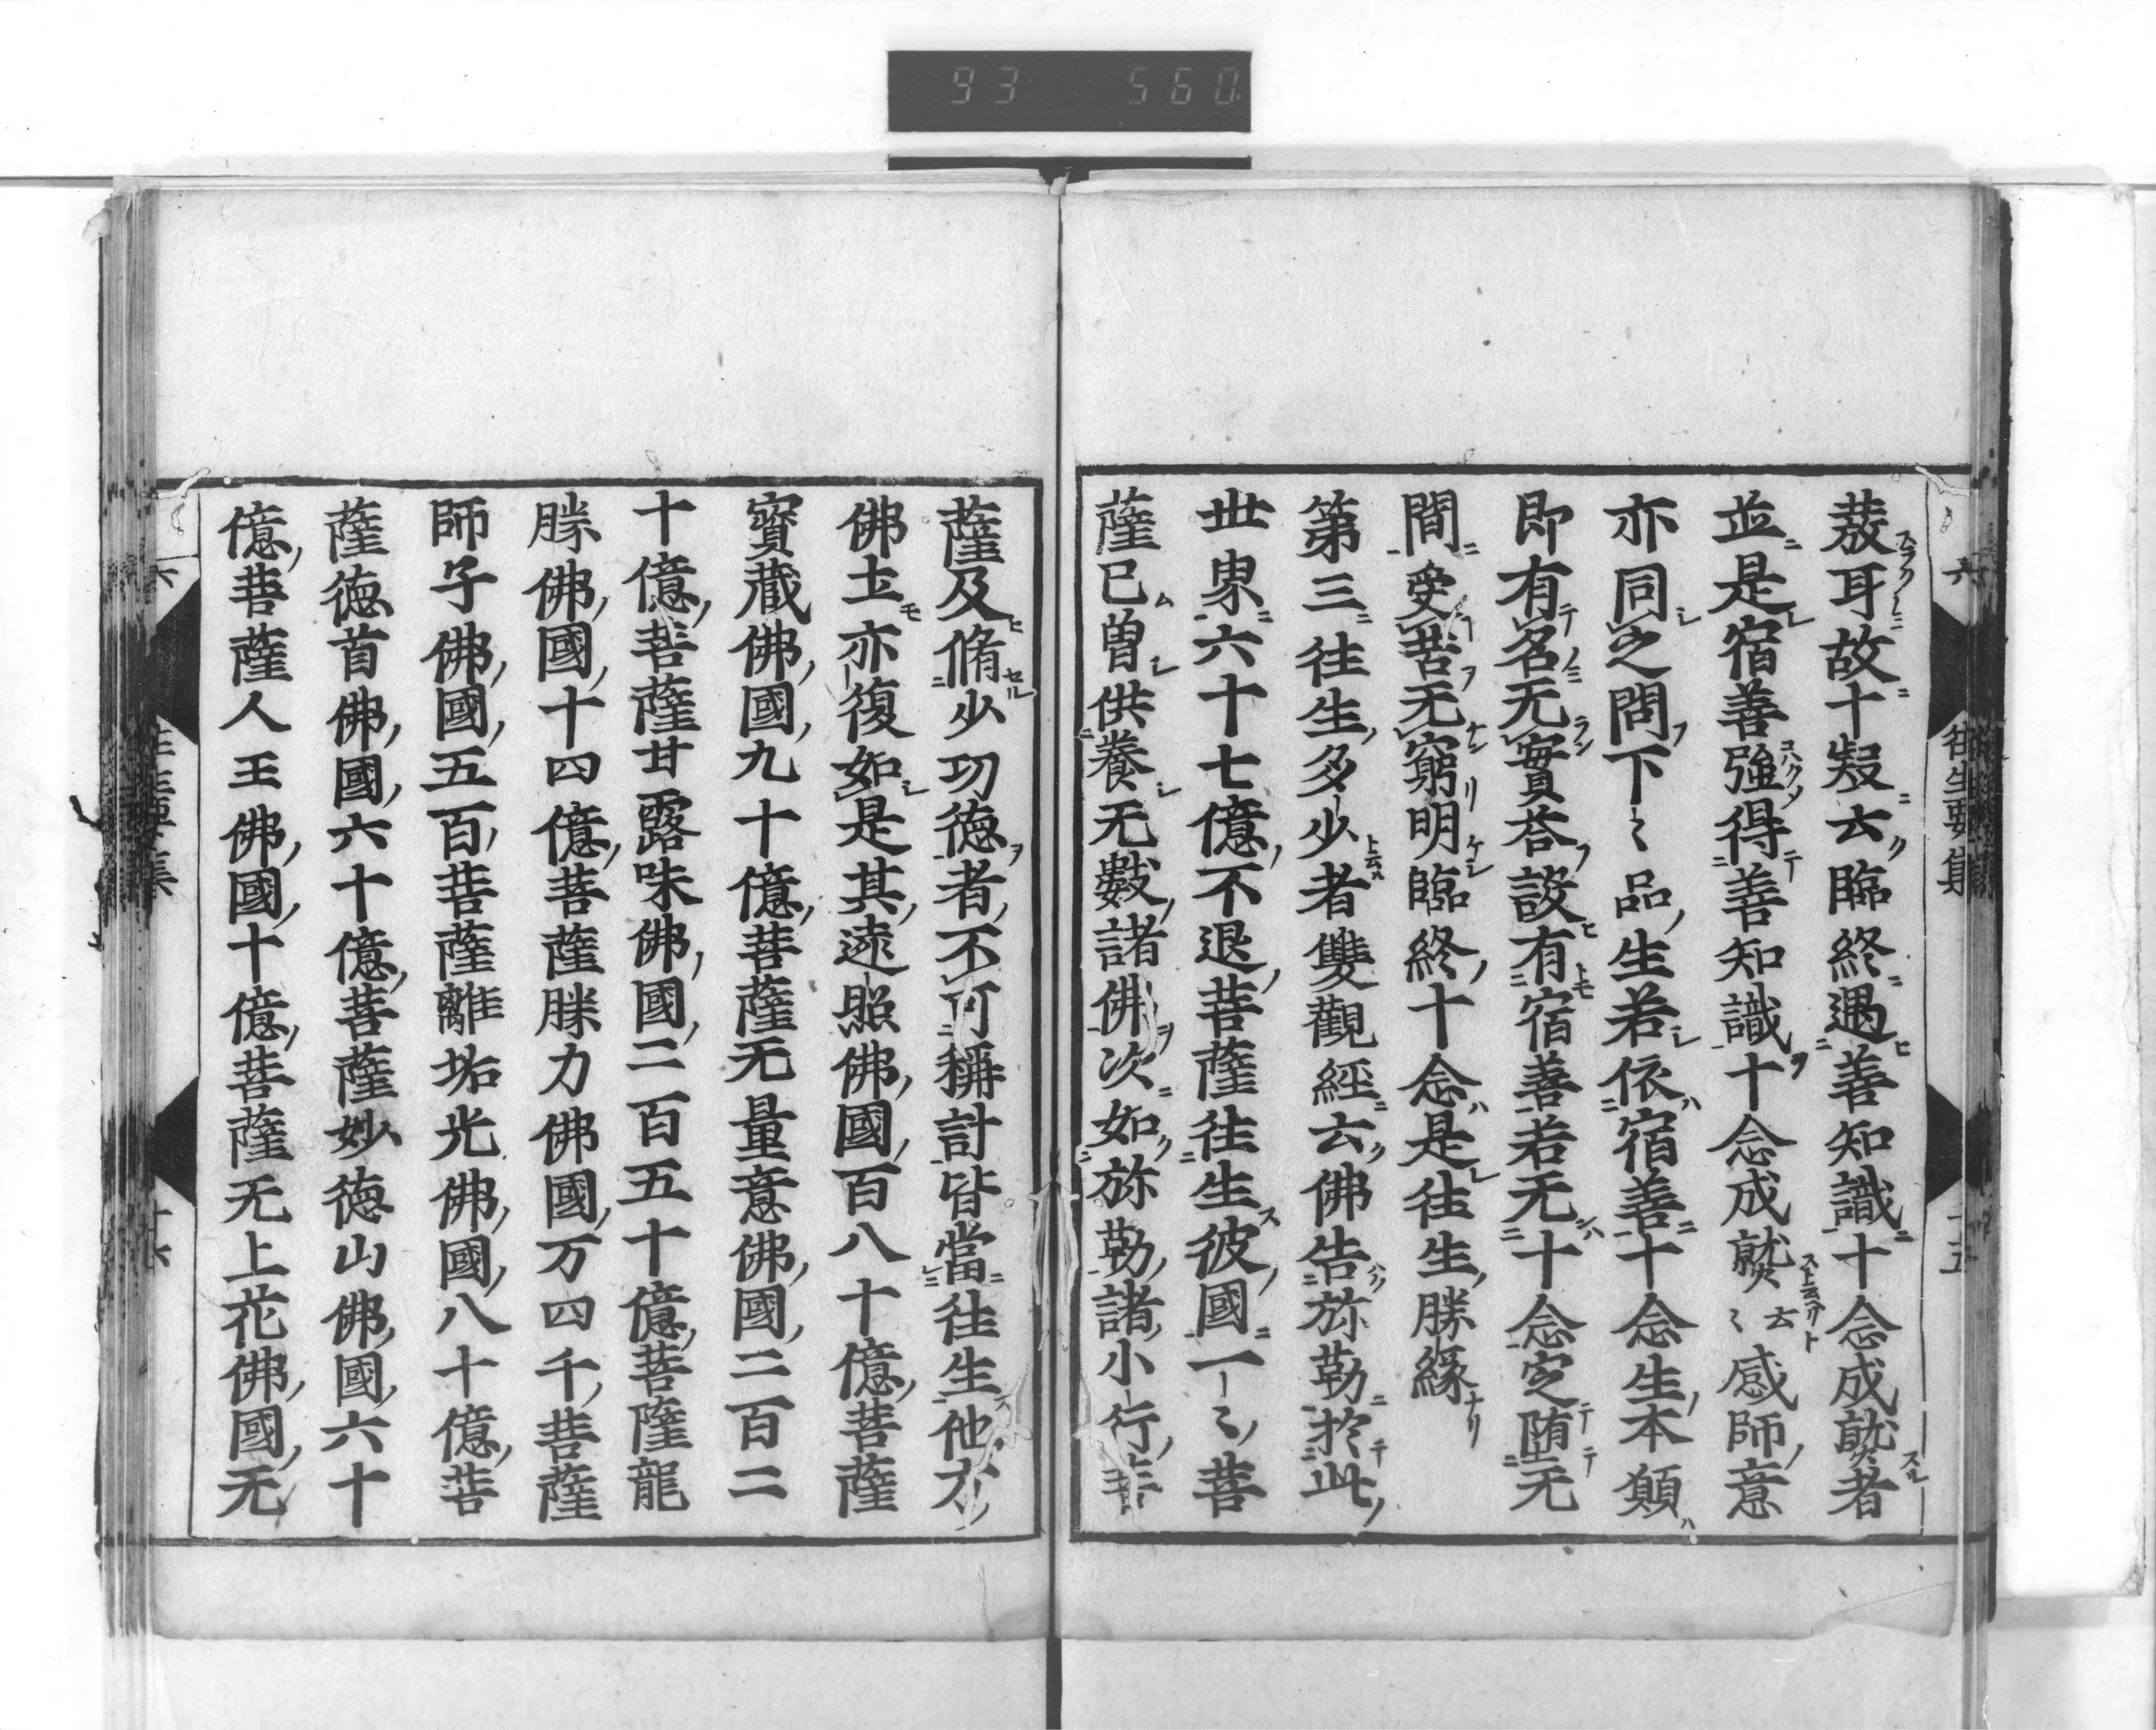 93 560
往生要集
蔉耳故十疑云臨終遇善知識十念成就者
並是宿善強得善知識十念成就云〻感師意
亦同之問下〻品生若依宿善十念生本願
即有名无實荅設有宿善若无十念定堕无
間受苦无窮明臨終十念是往生勝緣
第三往生多少者雙觀經云佛告弥勒於此
世界六十七億不退菩薩往生彼國一〻菩
薩已曽供養无數諸佛次如弥勒諸小行菩
薩及脩少功徳者不可稱計皆當往生他方
佛土亦復如是其遠照佛國百八十億菩薩
寳蔵佛國九十億菩薩无量意佛國二百二
十億菩薩甘露味佛國二百五十億菩薩龍
勝佛國十四億菩薩勝力佛國万四千菩薩
師子佛國五百菩薩離垢光佛國八十億菩
薩徳首佛國六十億菩薩妙徳山佛國六十
億菩薩人王佛國十億菩薩无上花佛國无